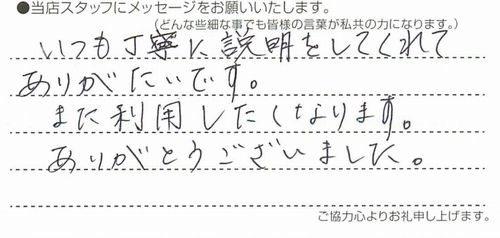 ●当店スタッフにメッセージをお願いいたします。
(どんな些細な事でも皆様の言葉が私共の力になります。)
いつも丁寧に説明をしてくれて
ありがたいです。
また利用したくなります。
ありがとうございました。
ご協力心よりお礼申し上げます。